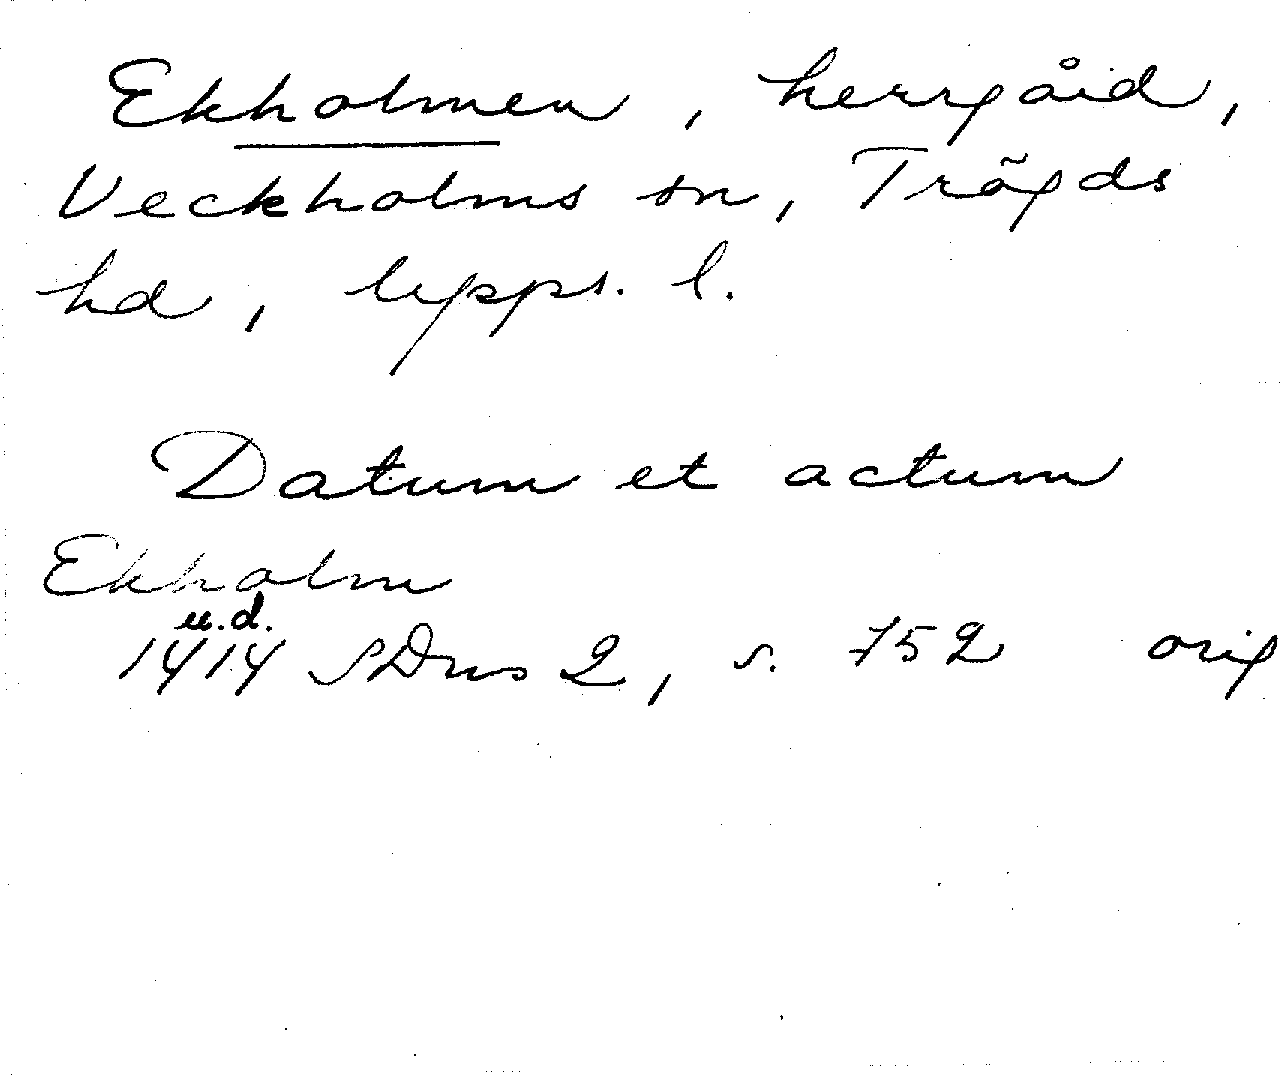 Ekholmen, herrgård,
Veckholms sn, Trögds
hd, Upps. l.
Datum et actum
Ekholm
u.d.
1414 SDns 2, s. 752 orig